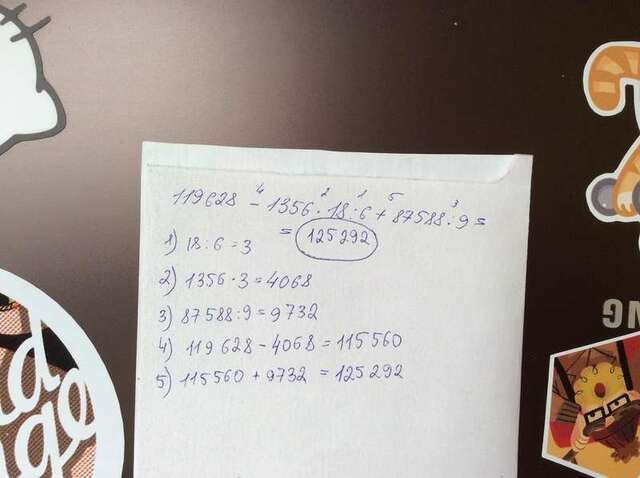 119628 - 1356 · 18 : 6 + 87588 : 9 =
4 2 1 5 3
= 125292
1) 18 : 6 = 3
2) 1356 · 3 = 4068
3) 87588 : 9 = 9732
4) 119628 - 4068 = 115560
5) 115560 + 9732 = 125292